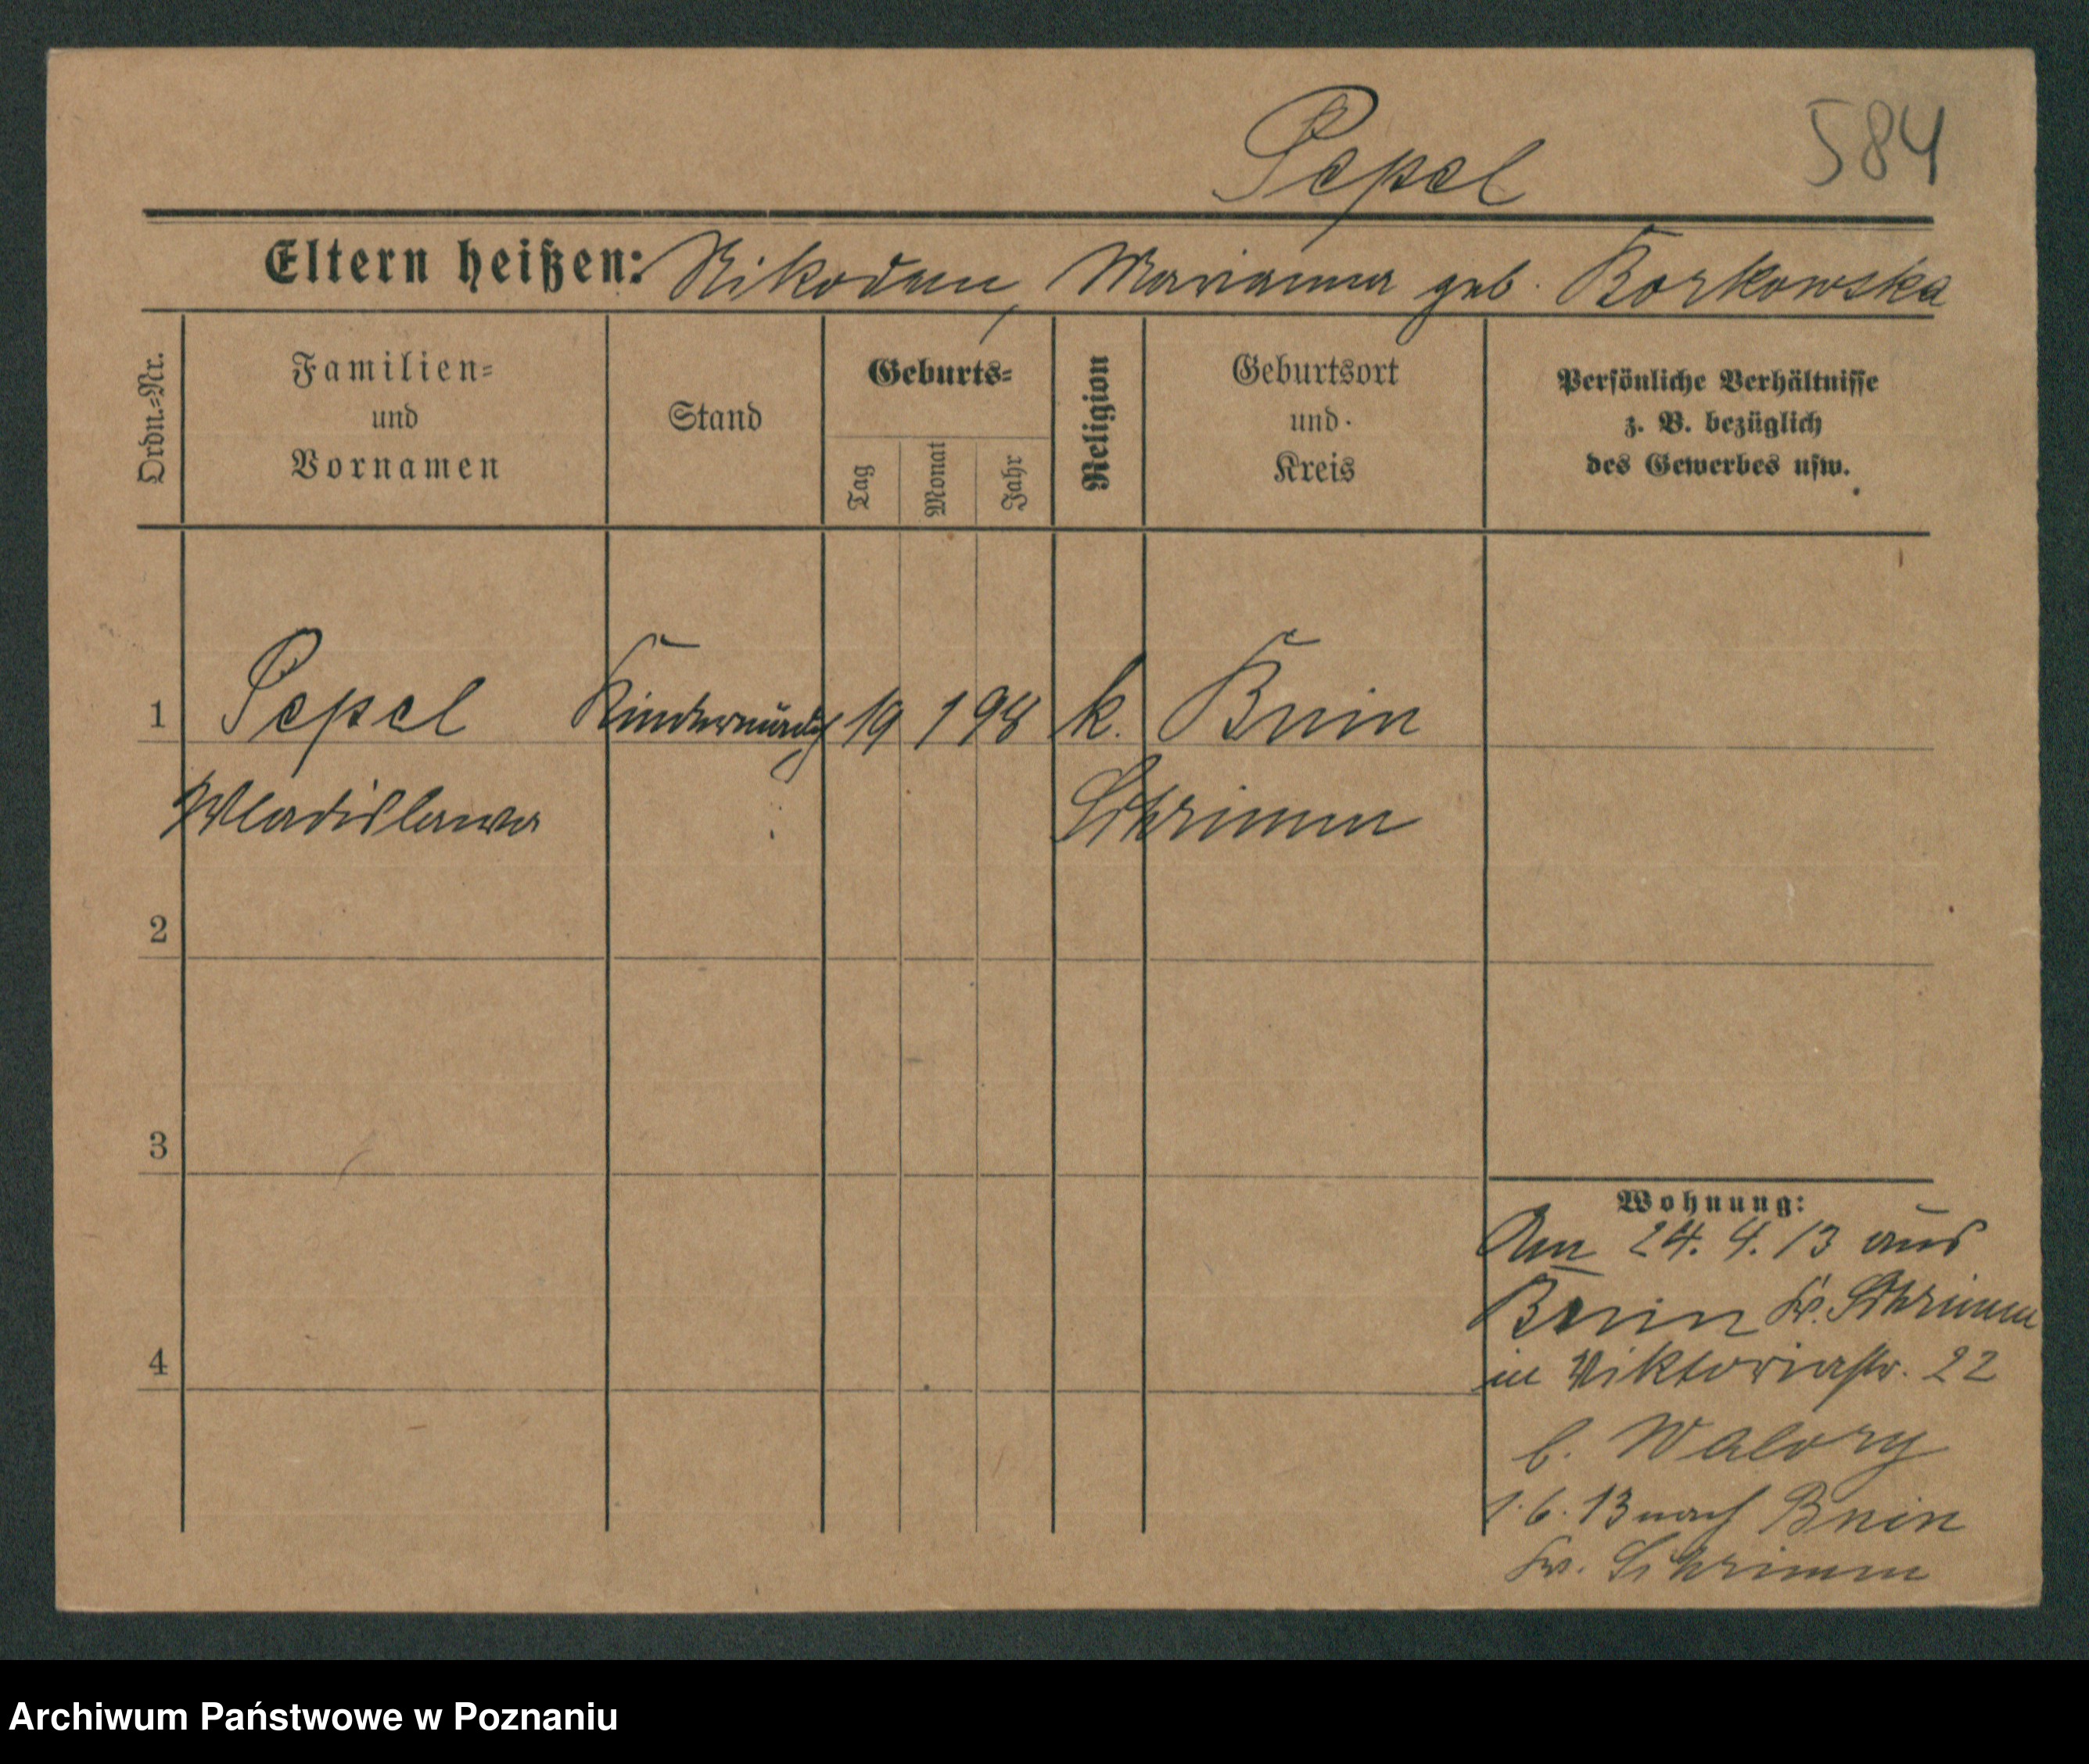 Pepel 584
Eltern heißen: Nikodem, Marianna geb. Borkowska
Ordn.-Nr.
Familien-
und
Vornamen
Stand
Geburts-
Tag
Monat
Jahr
Religion
Geburtsort
und
Kreis
Persönliche Verhältnisse
z. B. bezüglich
des Gewerbes usw.
1 Pepel 19 1 98 k. Bnin
Wladislawa Schrimm
2
3
4
Wohnung:
Am 24. 4. 13 aus
Bnin Kr. Schrimm
in Viktoriastr. 22
b. Walory
1. 6. 13 nach Bnin
Kr. Schrimm
Archiwum Państwowe w Poznaniu